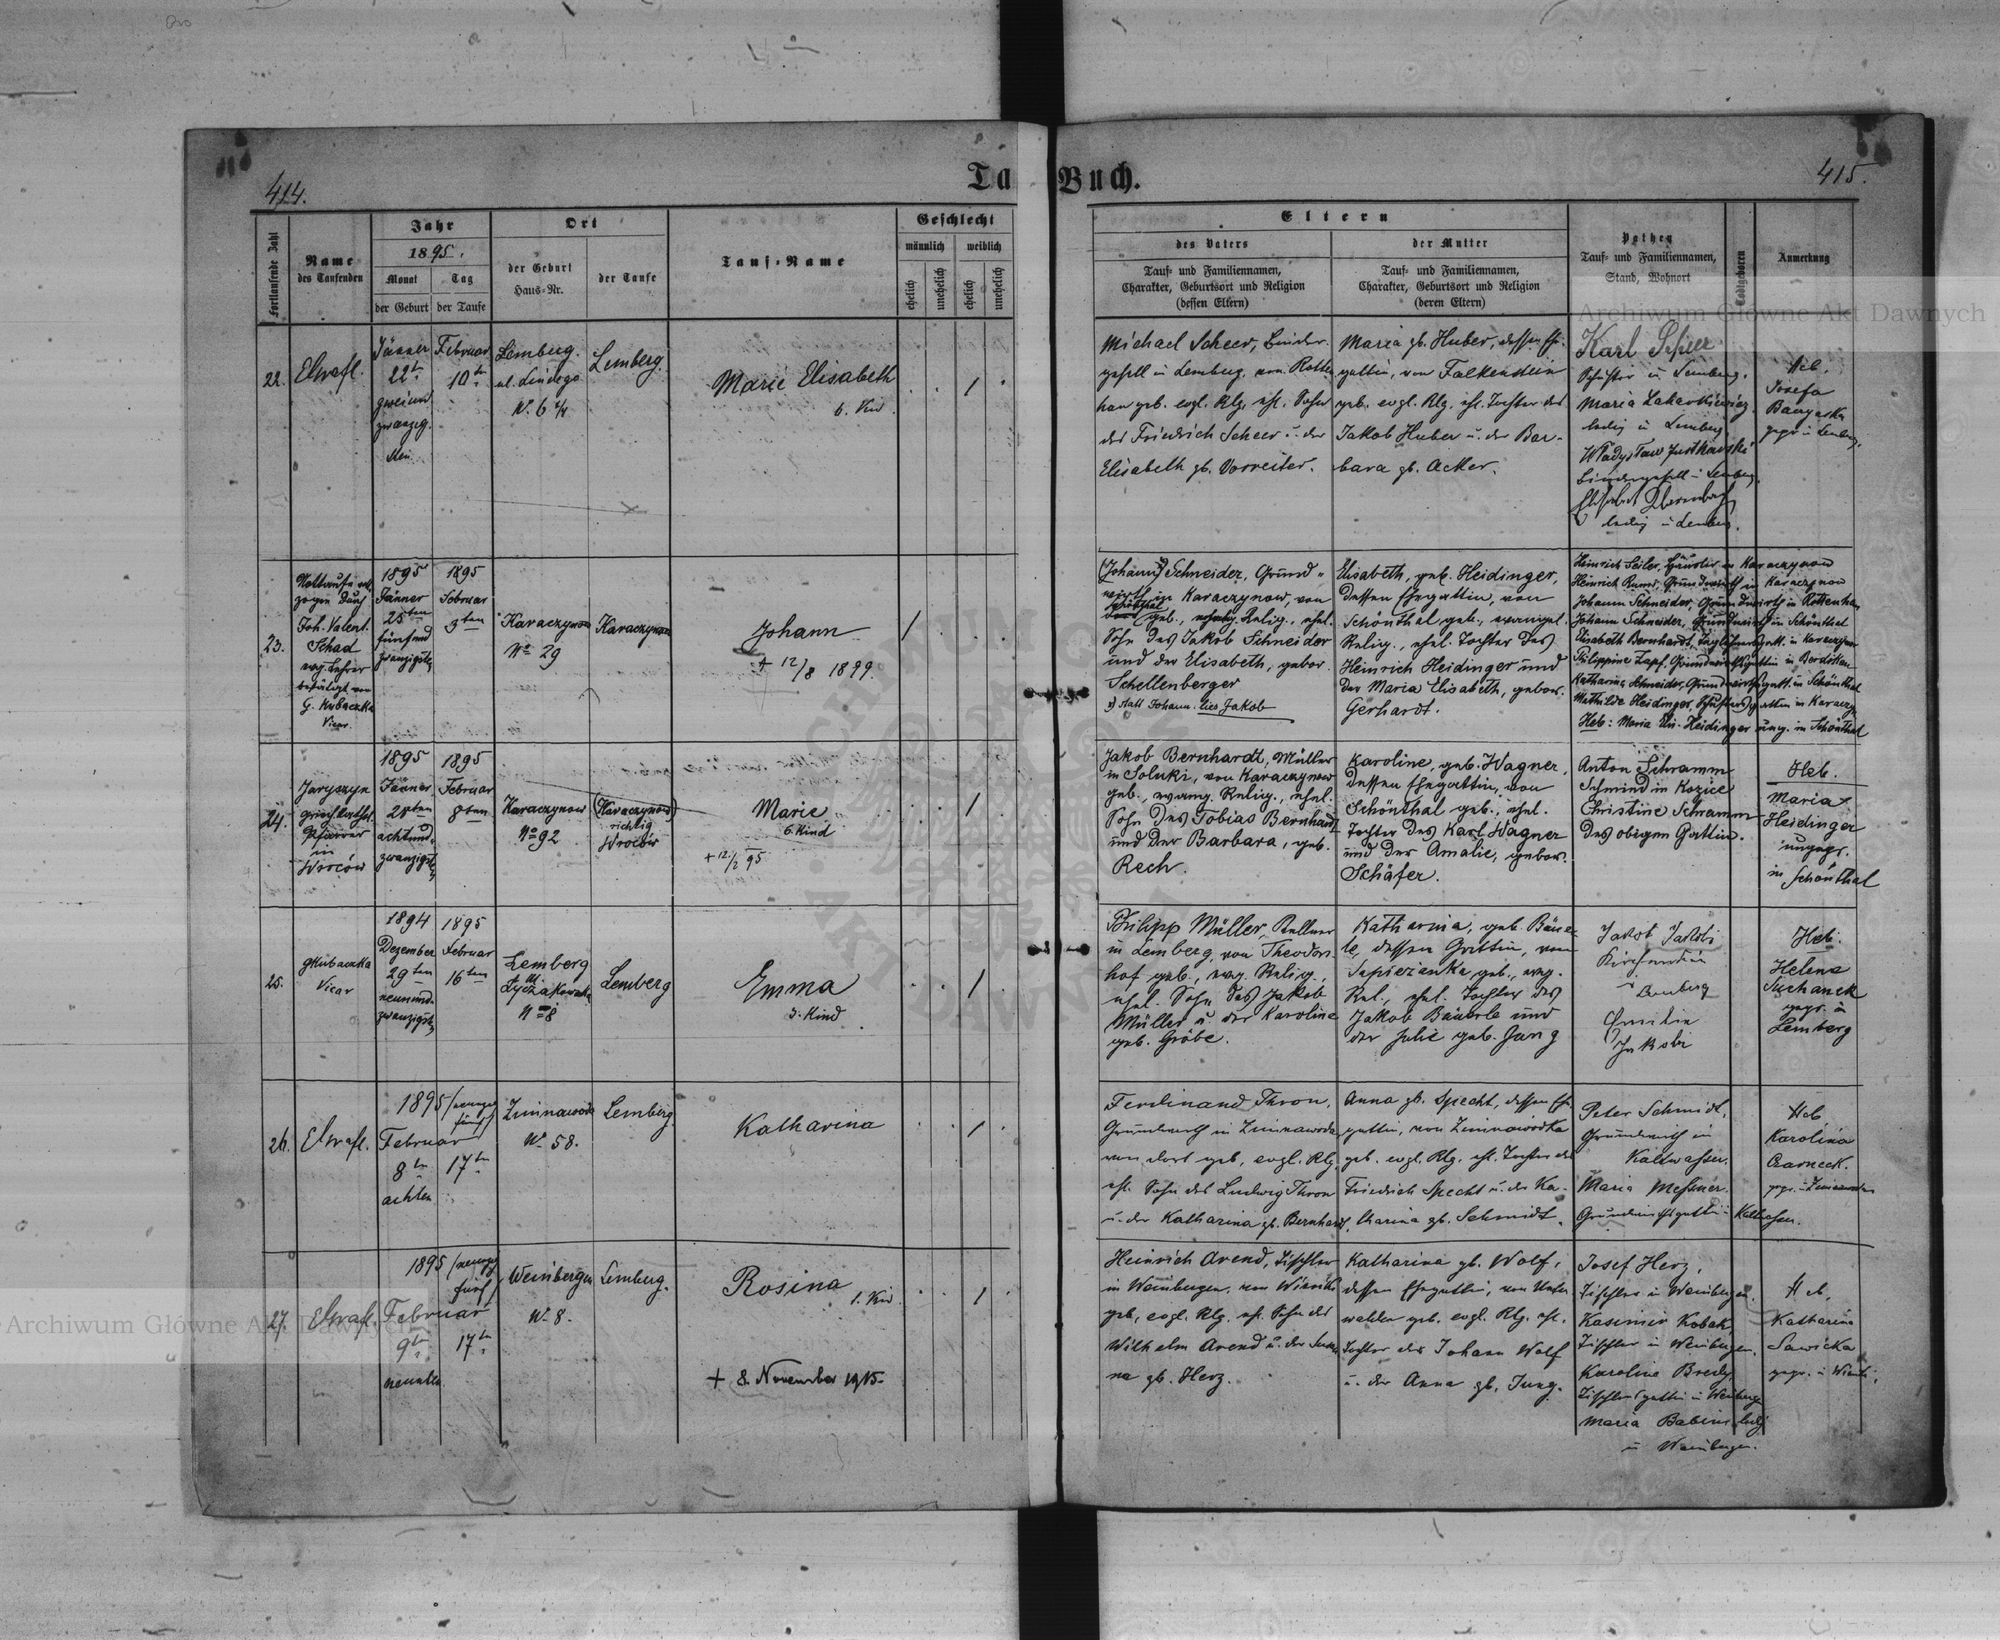 414.
Tauf-Buch.
415.
Fortlaufende Zahl
Name
des Taufenden
Jahr
1895.
Monat
der Geburt
Tag
der Taufe
Ort
der Geburt
Haus-Nr.
der Taufe
Tauf-Name
Geschlecht
männlich
weiblich
ehelich
unehelich
ehelich
unehelich
Eltern
des Vaters
Tauf- und Familiennamen,
Charakter, Geburtsort und Religion
(dessen Eltern)
der Mutter
Tauf- und Familiennamen,
Charakter, Geburtsort und Religion
(deren Eltern)
Pathen
Tauf- und Familiennamen,
Stand, Wohnort
Anmerkung
22.
Jänner
22ten
zweiund
zwanzig.
Februar
10ten
Lemberg.
Nr. 6
Lemberg.
Marie Elisabeth
6. Kind
Michael Scheer, Binder-
gesell in Lemberg, von Rotten
han geb. evgl. Rlg. ehl. Sohn
des Friedrich Scheer u. der
Elisabeth gb. Vorreiter.
Maria gb. Huber, dessen Ehe-
gattin, von Falkenstein
geb. evgl. Rlg. ehl. Tochter des
Jakob Huber u. der Bar-
bara gb. Acker.
Karl
Schuster in Lemberg.
Maria
ledig in Lemberg
ledig in Lemberg.
Heb.
Josefa
gepr. in Lemberg.
23.
Nottaufe voll-
zogen durch
Joh. Valent.
Schad
evg. Lehrer
bestätigt von
G. Kubaczka
Vicar.
1895
Jänner
25ten
fünfund
zwanzigsten
1895
Februar
3ten
Karaczynow
No 29
Karaczynow
Johann
+ 12/8 1899.
(Johann) Schneider, Grund-
wirth in Karaczynow, von
Schönthal
geb., evang. Relig., ehel.
Sohn des Jakob Schneider
und der Elisabeth, gebor.
Schellenberger
statt Johann. lies Jakob
Elisabeth, geb. Heidinger,
dessen Ehegattin, von
Schönthal geb., evangel.
Relig., ehel. Tochter des
Heinrich Heidinger und
der Maria Elisabeth, gebor.
Gerhardt.
Heinrich Seiler, Häusler in Karaczynow
Heinrich Grundwirth in Karaczynow
Johann Schneider, Grundwirth in Rottenhan
Johann Schneider, Grundwirth in Schönthal
Elisabeth Bernhardt, Taglöhnersgatt. in Karaczynow
Philippine Zapf, Grundwirthsgattin in
Katharina Schneider, Grundwirthsgatt. in Schönthal
Mathilde Heidinger, Schustersgattin in Karaczyn
Heb: Maria Elis. Heidinger ung. in Schönthal
24.
Jaryszyn
griech. kathol.
Pfarrer
in
Wroców
1895
Jänner
28ten
achtund-
zwanzigsten
1895
Februar
8ten
Karaczynow
No 92
(Karaczynow)
richtig
Wrocow
Marie
6. Kind
+ 12/2 95
Jakob Bernhardt, Müller
in Soluki, von Karaczynow
geb., evang. Relig., ehel.
Sohn des Tobias Bernhardt
und der Barbara, geb.
Rech.
Karoline, geb. Wagner,
dessen Ehegattin, von
Schönthal geb., ehel.
Tochter des Karl Wagner
und der Amalie, gebor.
Schäfer.
Anton Schramm
Schmied in Kozice
Christine Schramm
des obigen Gattin.
Heb.
Maria
Heidinger
ungepr.
in Schönthal
25.
GKubaczka
Vicar
1894
Dezember
29ten
neunund-
zwanzigsten
1895
Februar
16ten
Lemberg
Lyczakowska
No 8
Lemberg
Emma
3. Kind
Philipp Müller, Kellner
in Lemberg, von Theodors-
hof geb., evg. Relig.,
ehel. Sohn des Jakob
Müller u. der Karoline
geb. Gröbe.
Katharina, geb. Bäuer-
le, dessen Gattin, von
Sapiezanka geb., evg.
Rel., ehel. Tochter des
Jakob Bäuerle und
der Julie geb. Jung
Jakob Jakobi
Lemberg
Jakobi
Heb.
Helena
Suchanek
gepr. in
Lemberg
26.
1895
Februar
8ten
achten
17ten
Zimnawoda
Nr. 58.
Lemberg.
Katharina
Ferdinand Thron,
Grundwirth in Zimnawoda
von dort geb. evgl. Rlg.
ehl. Sohn des Ludwig Thron
u. der Katharina gb. Bernhardt.
Anna gb. Specht, dessen Ehe-
gattin, von Zimnawodka
geb. evgl. Rlg. ehl. Tochter des
Friedrich Specht u. der Ka-
tharina gb. Schmidt.
Peter Schmidt,
Grundwirth in
Kaltwasser.
Maria Messmer
Grundwirthsgattin in Kaltwasser.
Heb
Karolina
Czarneck.
gepr. in Zimnawoda
27.
1895
Februar
9ten
neunten
17ten
Weinbergen
Nr. 8.
Lemberg.
Rosina
1. Kind
+ 8. November 1915.
Heinrich Arend, Tischler
in Weinbergen, von
geb. evgl. Rlg. ehl. Sohn des
Wilhelm Arend u. der Susan-
na gb. Herz.
Katharina gb. Wolf,
dessen Ehegattin, von Unter
walden geb. evgl. Rlg. ehl.
Tochter des Johann Wolf
u. der Anna gb. Jung.
Josef Herz,
Tischler in Weinbergen.
Kasimir Kobak,
Tischler in Weinbergen.
Karoline
Tischlersgattin in Weinbergen
Maria ledig
in Weinbergen.
Heb.
Katharina
Sawicka
Archiwum Główne Akt Dawnych
Archiwum Główne Akt Dawnych